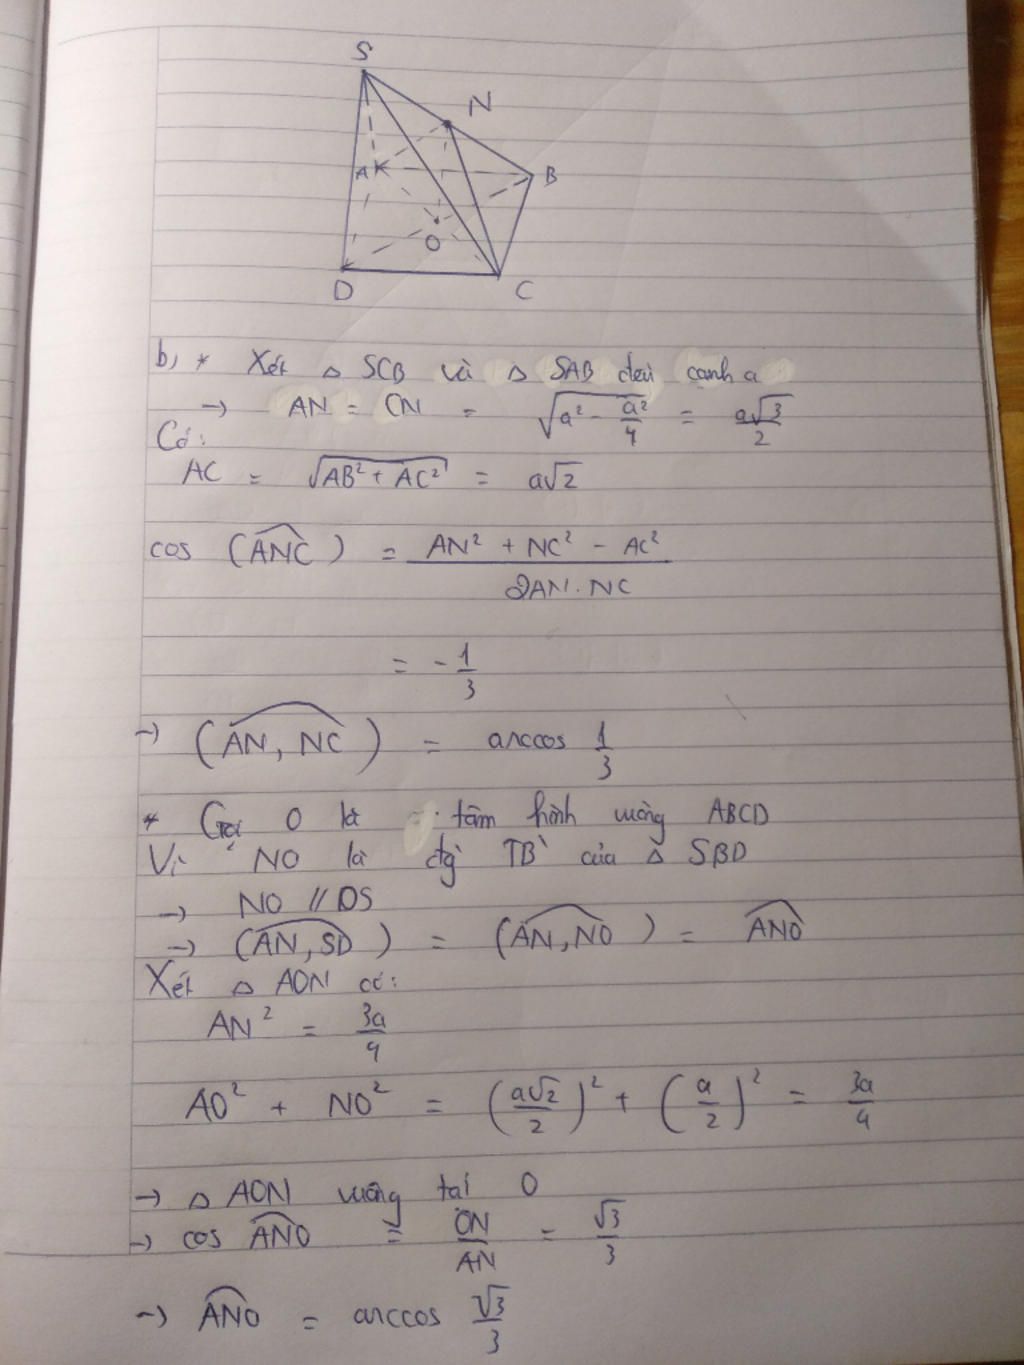 S
N
A
B
O
D
C
b, * Xét △ SCB và △ SAB đều cạnh a
→ AN = CN = √(a² - a²/4) = a√3/2
Có:
AC = √(AB² + AC²) = a√2
cos (ANC) = (AN² + NC² - AC²)/(2AN.NC)
= -1/3
→ (AN, NC) = arccos 1/3
* Gọi O là tâm hình vuông ABCD
Vì NO là đg TB của △ SBD
→ NO // DS
→ (AN, SD) = (AN, NO) = ANO
Xét △ AON có:
AN² = 3a/4
AO² + NO² = (a√2/2)² + (a/2)² = 3a/4
→ △ AON vuông tại O
→ cos ANO = ON/AN = √3/3
→ ANO = arccos √3/3